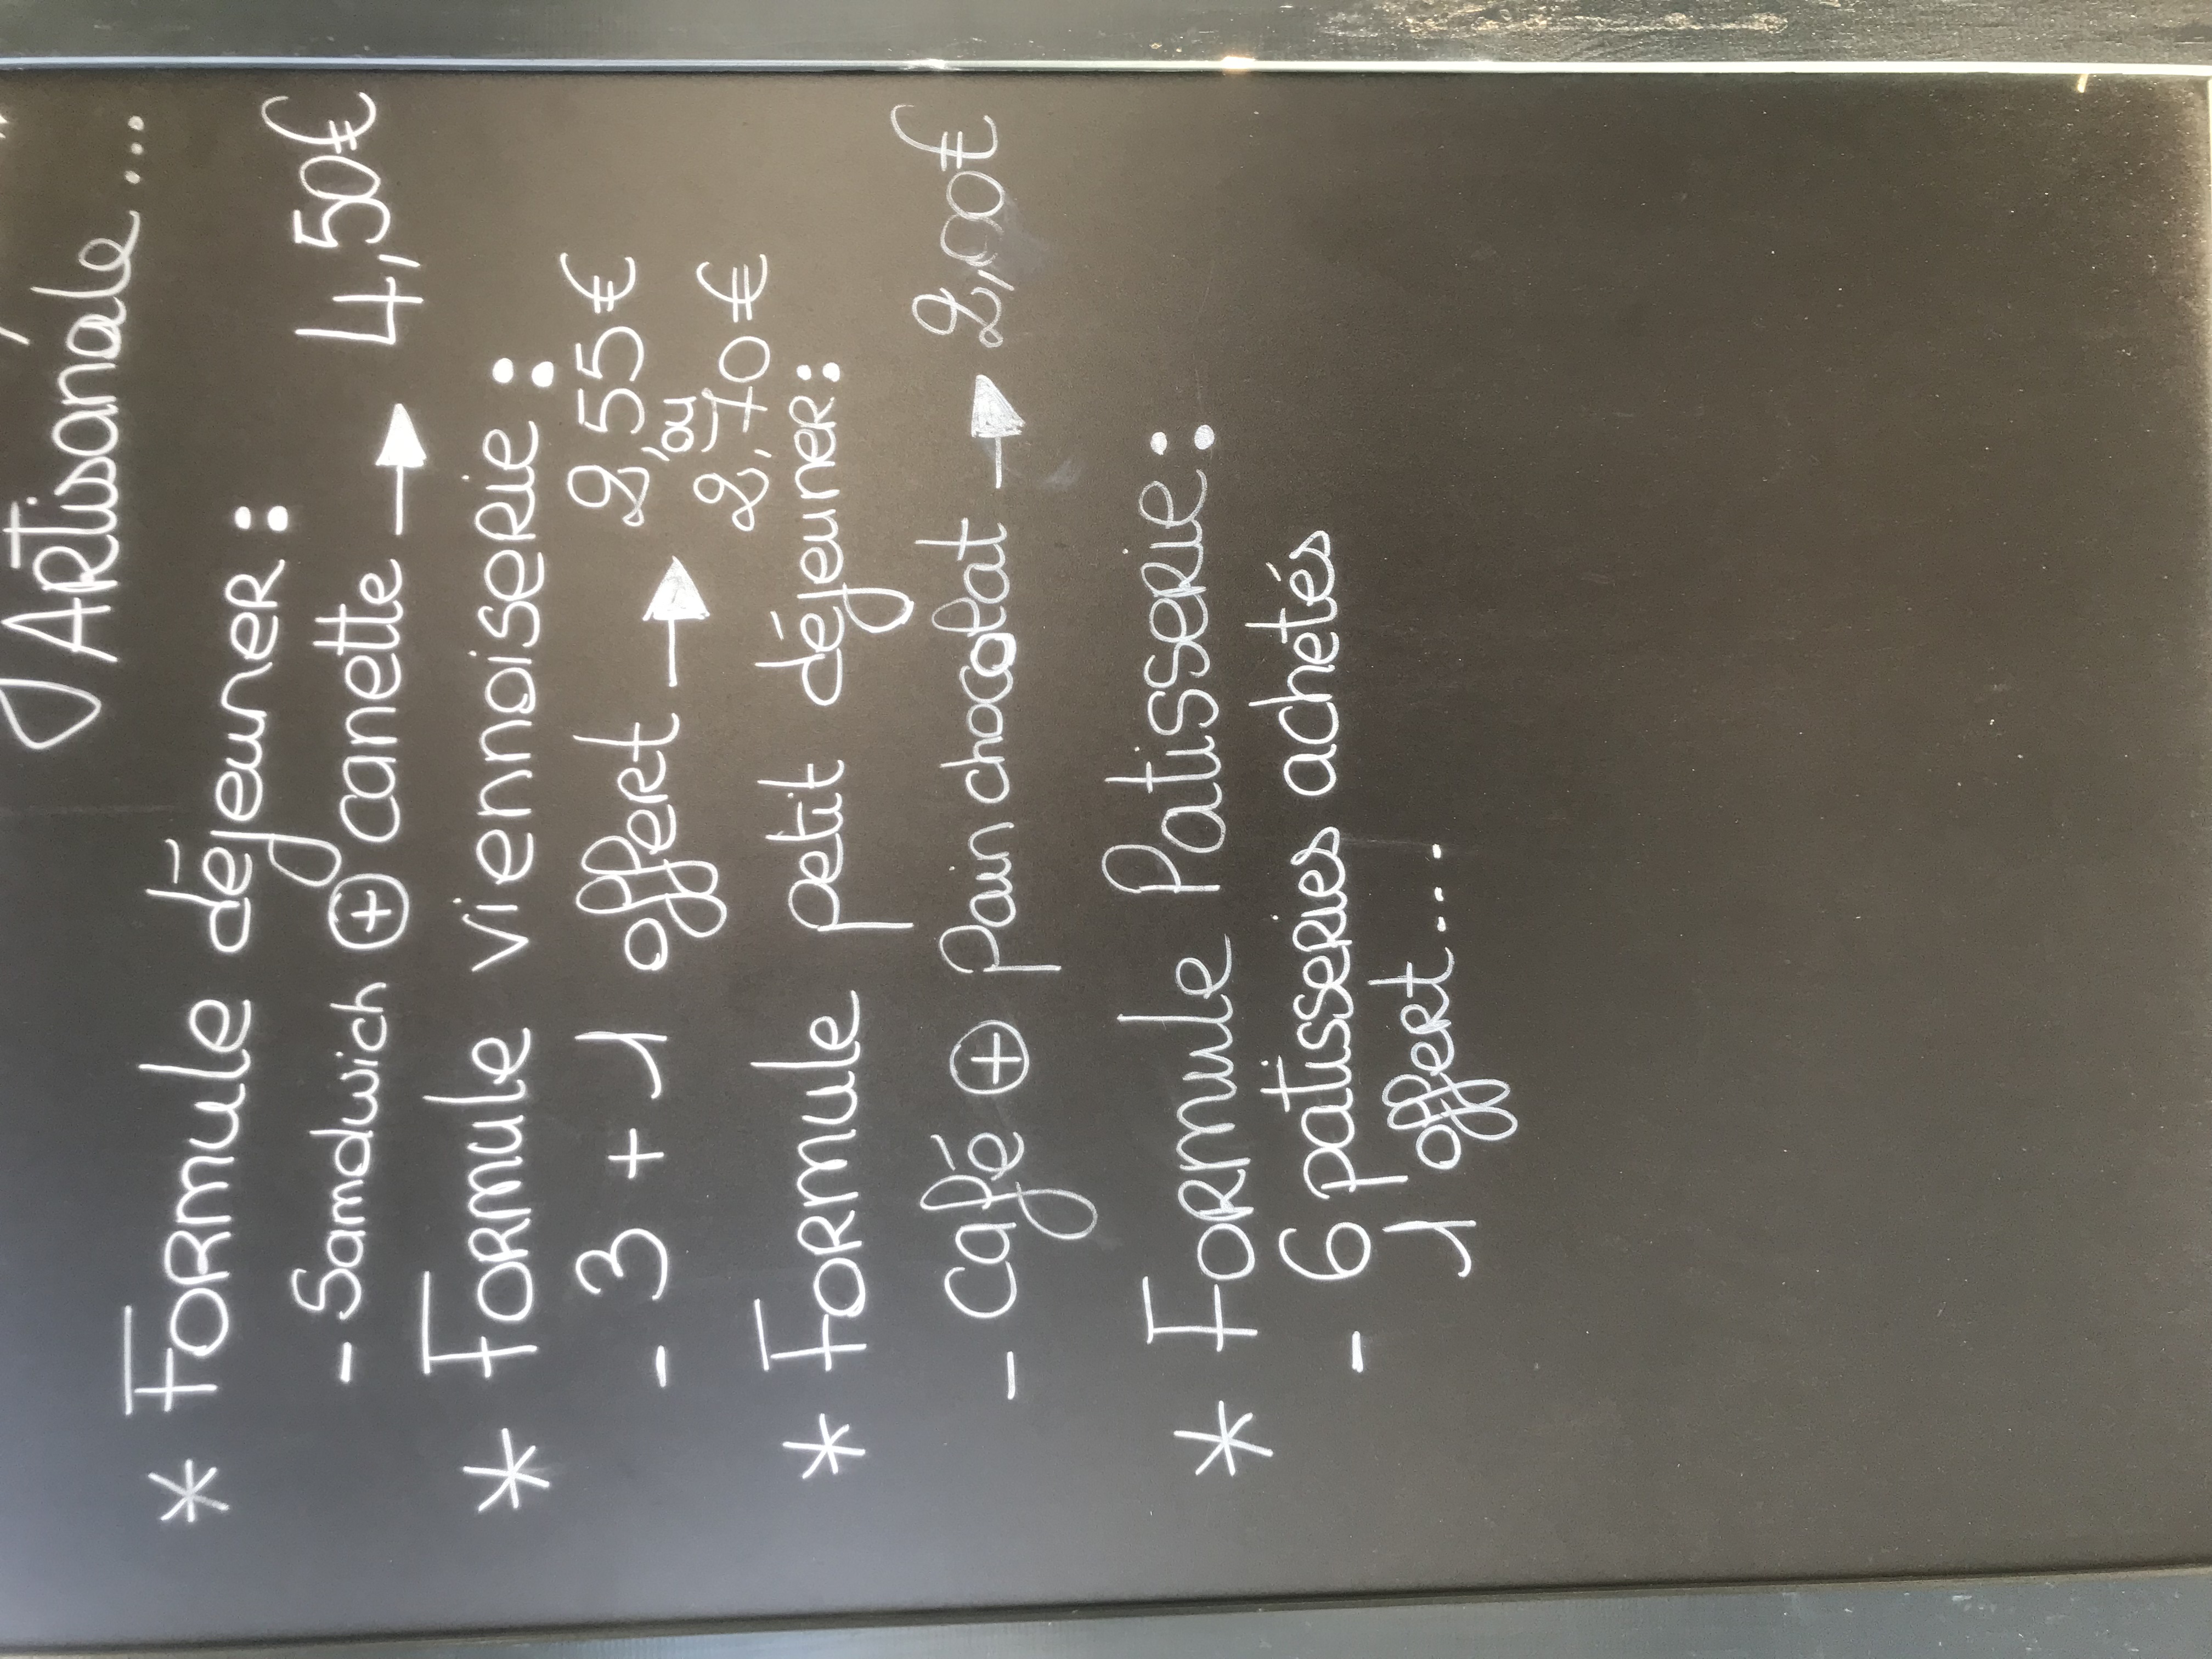 Artisanale...
* Formule déjeuner :
- Samdwich + canette → 4,50€
* Formule viennoiserie :
- 3 + 1 offert → 2,55€
ou
2,70€
* Formule petit déjeuner :
- Café + Pain chocolat → 2,00€
* Formule Patisserie :
- 6 patisseries achetés
1 offert...